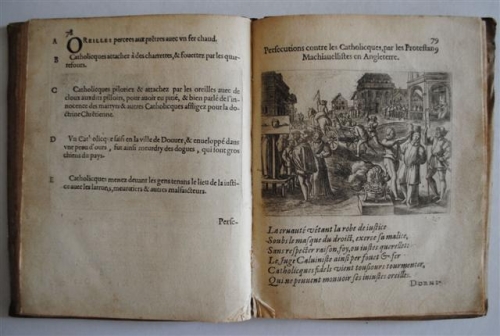 A OREILLES percees aux prestres avec un fer chaud.
B Catholicques attachez à des charrettes, & fouettez par les quar-
refours.
C Catholicques piloriés & attachez par les oreilles avec de
cloux ausdits piloris, pour avoir eu pitié, & bien parlé de l'in-
nocence des martyrs & autres Catholicques affligez pour la do-
ctrine Chrestienne.
D Un Catholicque saisi en la ville de Douvre, & enveloppé dans
une peau d'ours, fut ainsi mourdry des dogues, qui sont gros
du pays.
E Catholicques menez devant les gens tenans le lieu de la justi-
ce avec les larrons, & autres malfaicteurs.
Perse-
79
Persecutions contre les Catholicques, par les Protestans
Machiavellistes en Angleterre.
La cruauté vêtant la robe de justice
Soubs le masque du droict, exerce sa malice,
Sans respecter raison, foy, ou justes querelles:
Le Juge Calviniste ainsi par fouët & fer
Catholicques fidels vient tousiours tourmenter,
Qui ne peuvent mouvoir ses injustes oreilles.